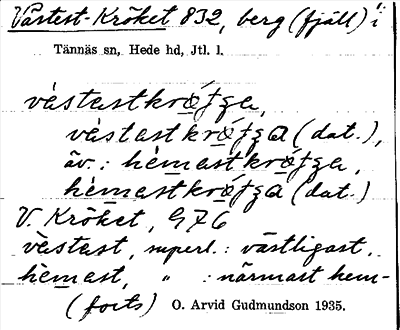 Västest-Kröket 832, berg (fjäll) i
Tännäs sn, Hede hd, Jtl. l.
västastkrǿtza,
västastkrǿtza (dat.),
äv.: hèmastkrǿtza,
hèmastkrǿtza (dat.)
V. Kröket, G76
vèstast, superl.: västligast,
hèmast, " : närmast hem-
(forts) O. Arvid Gudmundson 1935.